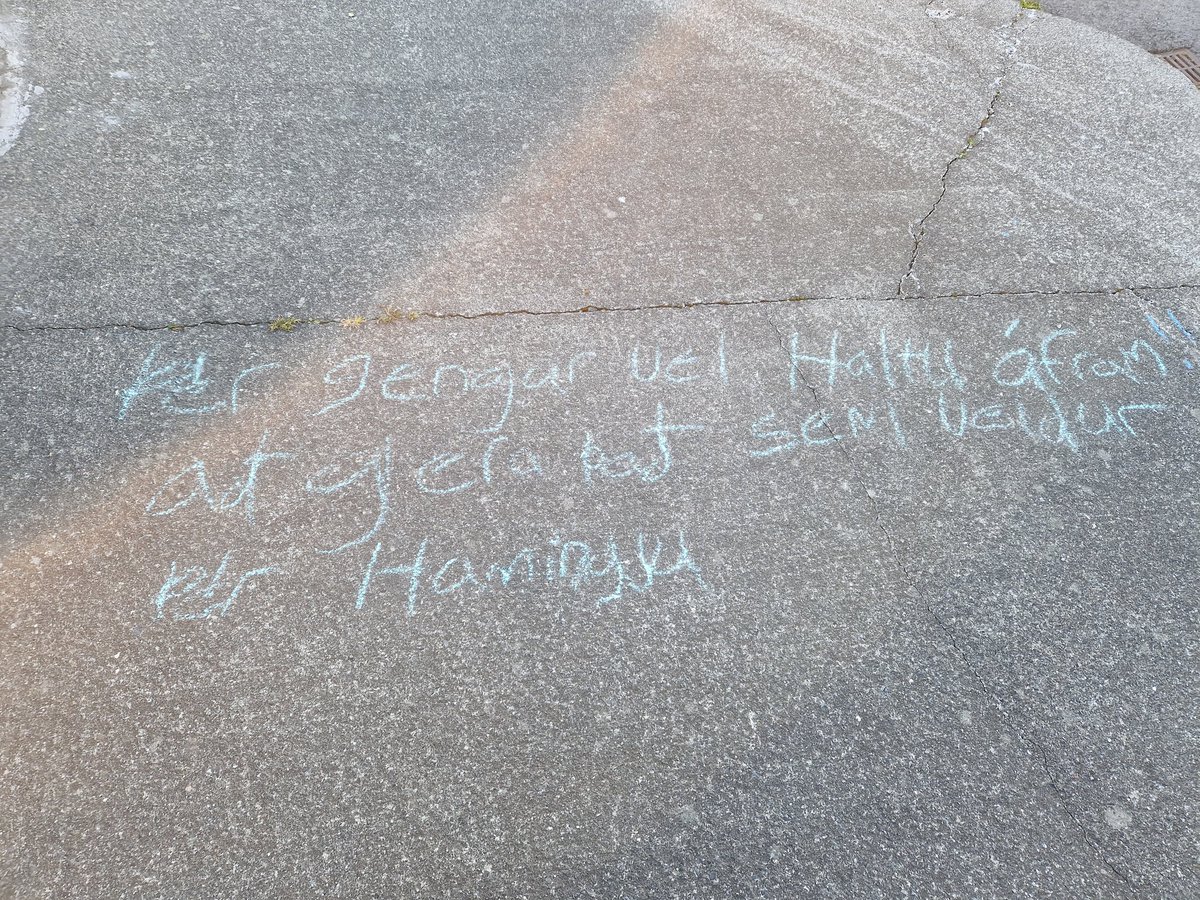 þér gengur vel. Haltu áfram"
að gera það sem veldur
þér Hamingju